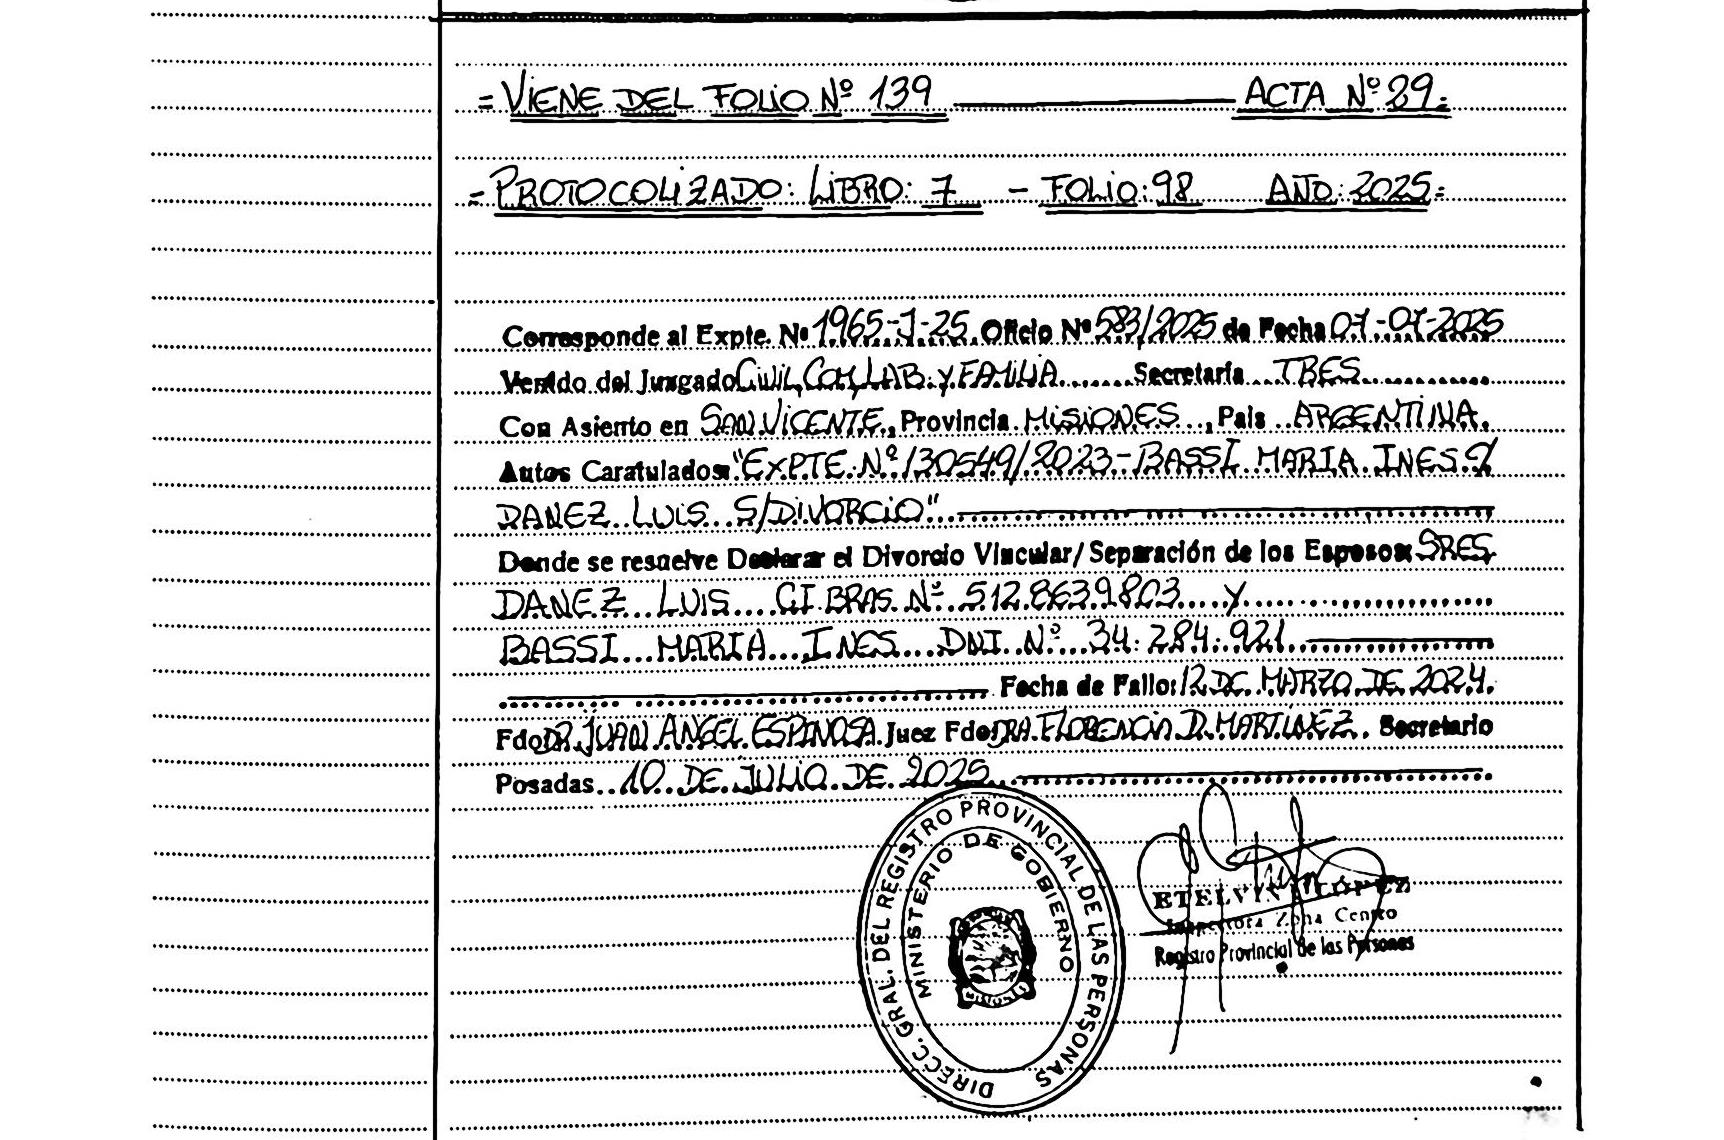 = VIENE DEL FOLIO Nº 139 ACTA Nº 29 =
= PROTOCOLIZADO: LIBRO: 7 - FOLIO: 98 AÑO: 2025 =
Corresponde al Expte. Nº 1965-J-25 Oficio Nº 583/2025 de Fecha 07-07-2025
Venido del Juzgado Civil, Com, LAB. y FAMILIA Secretaría TRES
Con Asiento en SAN VICENTE, Provincia MISIONES, País ARGENTINA.
Autos Caratulados: "EXPTE. Nº 130549/2023 - BASSI MARIA INES C/
DANEZ LUIS S/DIVORCIO"
Donde se resuelve Declarar el Divorcio Vincular/Separación de los Esposos: SRES.
DANEZ LUIS C.I BRAS. Nº 512.8639803 y
BASSI MARIA INES DNI Nº 34.284.921
Fecha de Fallo: 12 DE MARZO DE 2024.
Fdo DR. JUAN ANGEL ESPINOSA Juez Fdo: DRA. FLORENCIA D. MARTINEZ. Secretario
Posadas 10 DE JULIO DE 2025
DIRECC. GRAL. DEL REGISTRO PROVINCIAL DE LAS PERSONAS
MINISTERIO DE GOBIERNO
MISIONES
ETELVINA LÓPEZ
Inspectora Zona Centro
Registro Provincial de las Personas